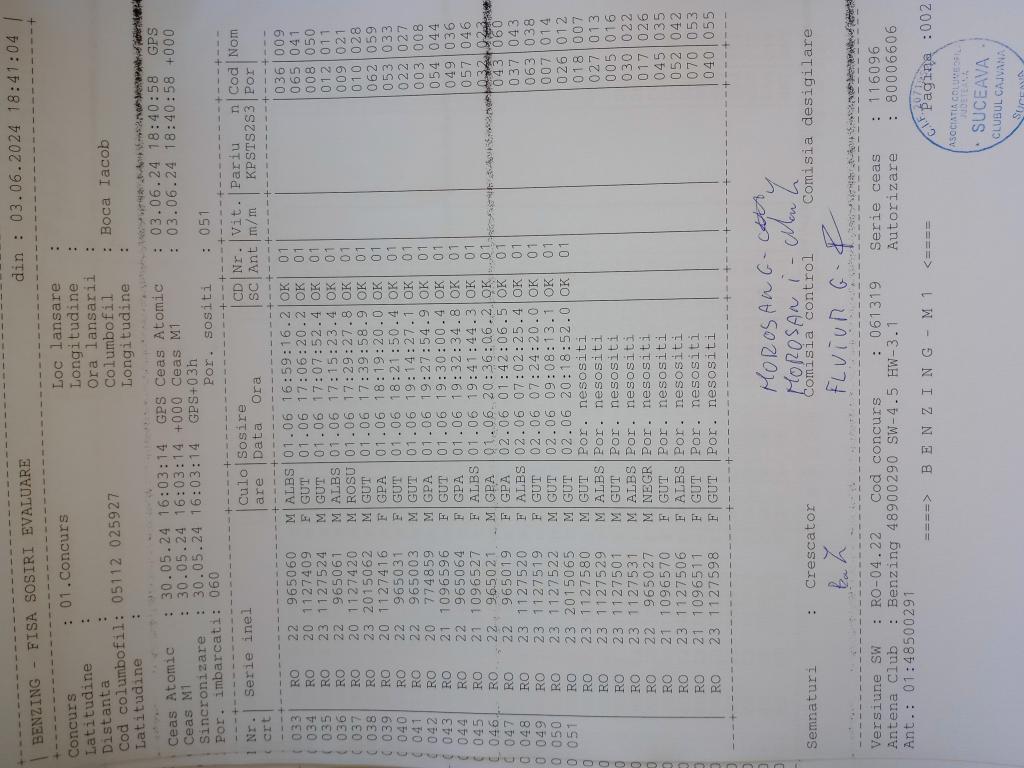 BENZING - FISA SOSIRI EVALUARE din : 03.06.2024 18:41:04
Concurs : 01.Concurs Loc lansare :
Latitudine : Longitudine :
Distanta : Ora lansarii :
Cod columbofil: 05112 025927 Columbofil : Boca Iacob
Latitudine : Longitudine :
Ceas Atomic : 30.05.24 16:03:14 GPS Ceas Atomic : 03.06.24 18:40:58 GPS
Ceas M1 : 30.05.24 16:03:14 +000 Ceas M1 : 03.06.24 18:40:58 +000
Sincronizare : 30.05.24 16:03:14 GPS+03h
Por. imbarcati: 060 Por. sositi : 051
Nr. Serie inel Culo Sosire CD Nr. Vit. Pariu n Cod Nom
crt are Data Ora SC Ant m/m KPSTS2S3 Por
033 RO 22 965060 M ALBS 01.06 16:59:16.2 OK 01 036 009
034 RO 20 1127409 F GUT 01.06 17:06:20.2 OK 01 065 041
035 RO 23 1127524 M GUT 01.06 17:07:52.4 OK 01 008 050
036 RO 22 965061 M ALBS 01.06 17:15:23.4 OK 01 012 011
037 RO 20 1127420 M ROSU 01.06 17:29:27.8 OK 01 009 021
038 RO 23 2015062 M GUT 01.06 17:39:58.9 OK 01 010 028
039 RO 20 1127416 F GPA 01.06 18:19:20.0 OK 01 062 059
040 RO 22 965031 F GUT 01.06 18:21:50.4 OK 01 053 033
041 RO 22 965003 M GUT 01.06 19:14:27.1 OK 01 022 027
042 RO 20 774859 M GPA 01.06 19:27:54.9 OK 01 063 018
043 RO 21 1096596 F GUT 01.06 19:30:00.4 OK 01 054 044
044 RO 22 965064 F GPA 01.06 19:32:34.8 OK 01 049 036
045 RO 21 1096527 F ALBS 01.06 19:41:44.3 OK 01 057 046
046 RO 22 965021 M GPA 01.06 20:36:06.2 OK 01 023
047 RO 22 965019 F GPA 02.06 01:42:06.5 OK 01 043 060
048 RO 23 1127520 F ALBS 02.06 07:02:25.4 OK 01 037 043
049 RO 23 1127519 F GUT 02.06 07:24:20.0 OK 01 063 038
050 RO 23 1127522 M GUT 02.06 09:08:13.1 OK 01 007 014
051 RO 23 2015065 M GUT 02.06 20:18:52.0 OK 01 026 012
RO 23 1127580 M GUT Por. nesositi 018 007
RO 23 1127529 M ALBS Por. nesositi 027 013
RO 23 1127531 M GUT Por. nesositi 005 016
RO 23 1127501 M ALBS Por. nesositi 030 022
RO 22 965027 M NEGR Por. nesositi 017 026
RO 21 1096570 F GUT Por. nesositi 045 035
RO 23 1127506 F ALBS Por. nesositi 052 042
RO 21 1096511 F ALBS Por. nesositi 070 053
RO 23 1127598 F GUT Por. nesositi 040 055
MOROSAN G-
MOROSAN i -
Semnaturi : Crescator Comisia control Comisia desigilare
FLUTUR G-
Versiune SW : RO-04.22 Cod concurs : 061319 Serie ceas : 116096
Antena Club : Benzing 48900290 SW-4.5 HW-3.1 Autorizare : 80006606
Ant.: 01:48500291 Pagina :002
====> B E N Z I N G - M 1 <====
ASOCIATIA COLUMBOFILA
JUDETEANA
SUCEAVA
CLUBUL CAJVANA